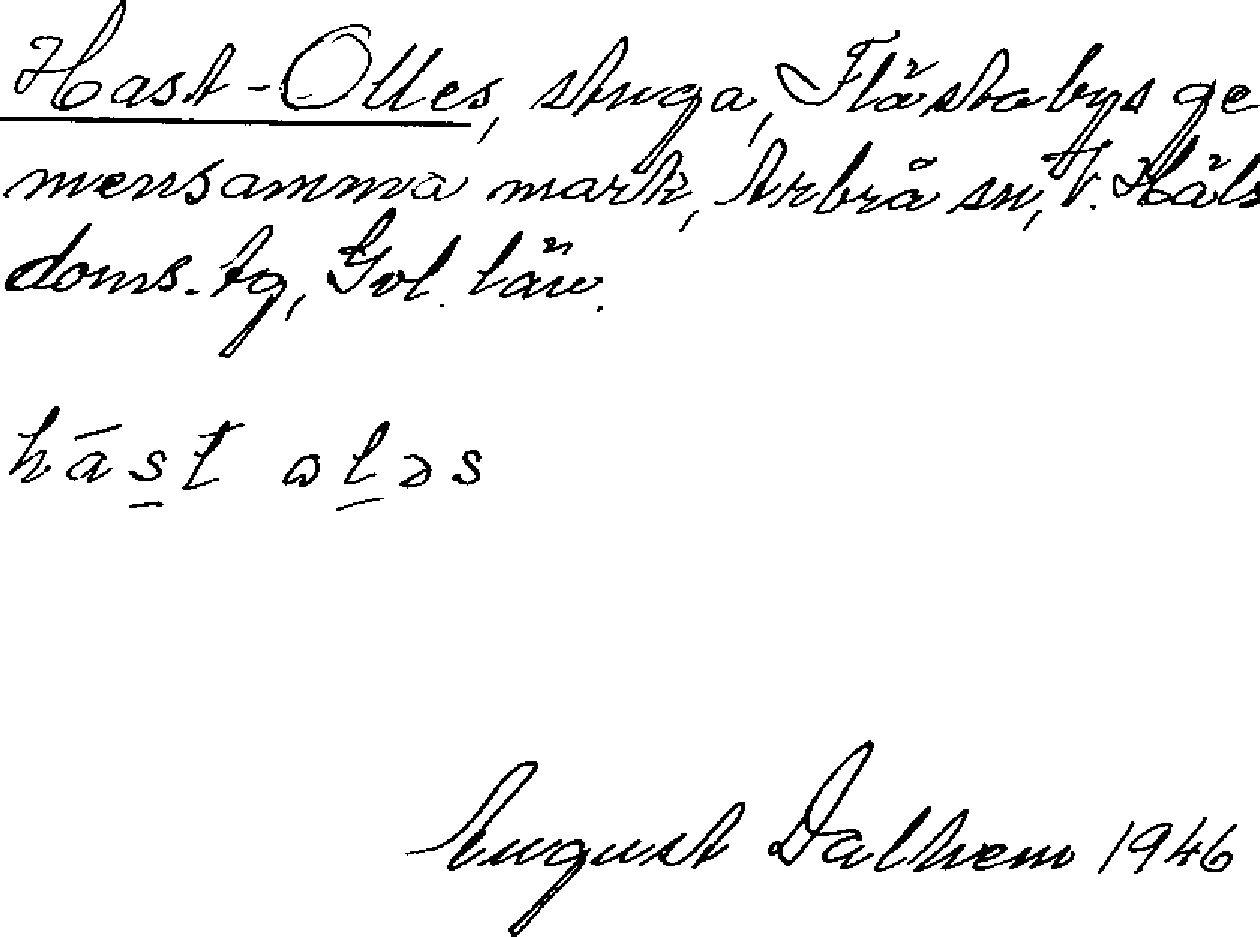 Hast-Olles, stuga, Flästabys ge
mensamma mark, Arbrå sn, V. Häls
doms. tg, Gvl. län.
hást ɷlɘs
August Dalhem 1946